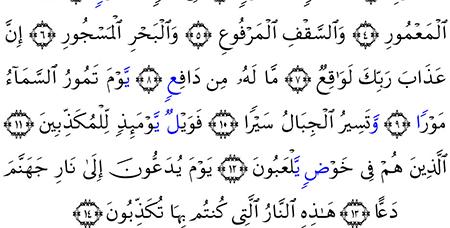 ٱلْمَعْمُورِ ﴿٤﴾ وَٱلسَّقْفِ ٱلْمَرْفُوعِ ﴿٥﴾ وَٱلْبَحْرِ ٱلْمَسْجُورِ ﴿٦﴾ إِنَّ
عَذَابَ رَبِّكَ لَوَٰقِعٌ ﴿٧﴾ مَّا لَهُۥ مِن دَافِعٍ ﴿٨﴾ يَوْمَ تَمُورُ ٱلسَّمَآءُ
مَوْرًا ﴿٩﴾ وَتَسِيرُ ٱلْجِبَالُ سَيْرًا ﴿١٠﴾ فَوَيْلٌ يَوْمَئِذٍ لِّلْمُكَذِّبِينَ ﴿١١﴾
ٱلَّذِينَ هُمْ فِى خَوْضٍ يَلْعَبُونَ ﴿١٢﴾ يَوْمَ يُدَعُّونَ إِلَىٰ نَارِ جَهَنَّمَ
دَعًّا ﴿١٣﴾ هَـٰذِهِ ٱلنَّارُ ٱلَّتِى كُنتُم بِهَا تُكَذِّبُونَ ﴿١٤﴾